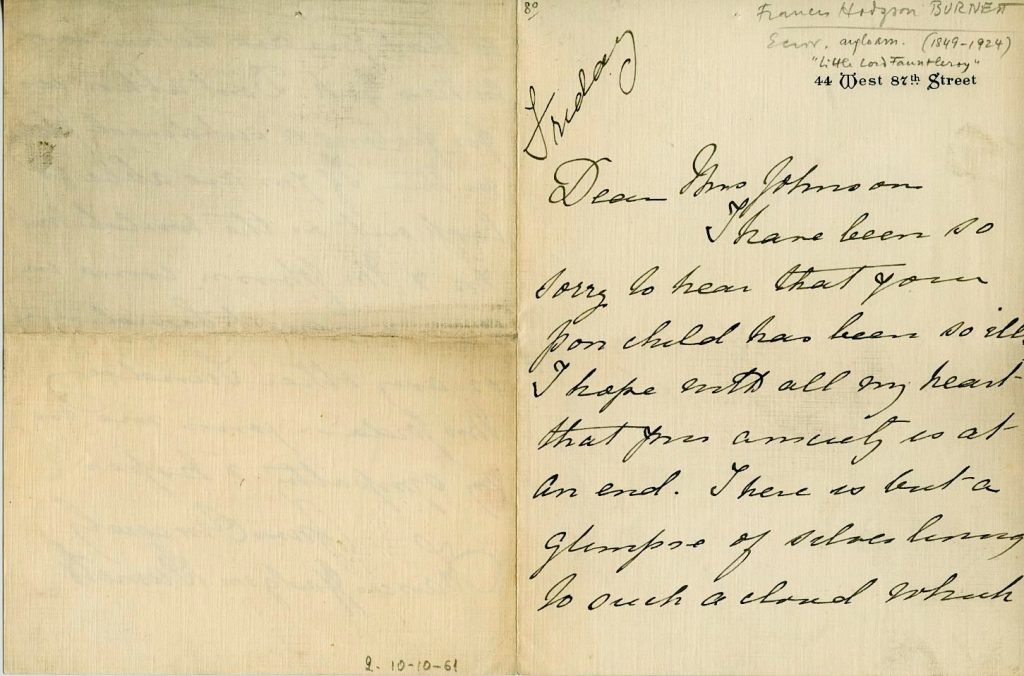 80
Francis Hodgson BURNETT
Ecriv. angloam. (1849-1924)
"Little Lord Fauntleroy"
44 West 87th Street
Friday
Dear Mrs Johnson
I have been so
sorry to hear that your
poor child has been so ill.
I hope with all my heart
that your anxiety is at
an end. There is but a
glimpse of silver lining
to such a cloud which
2. 10-10-61